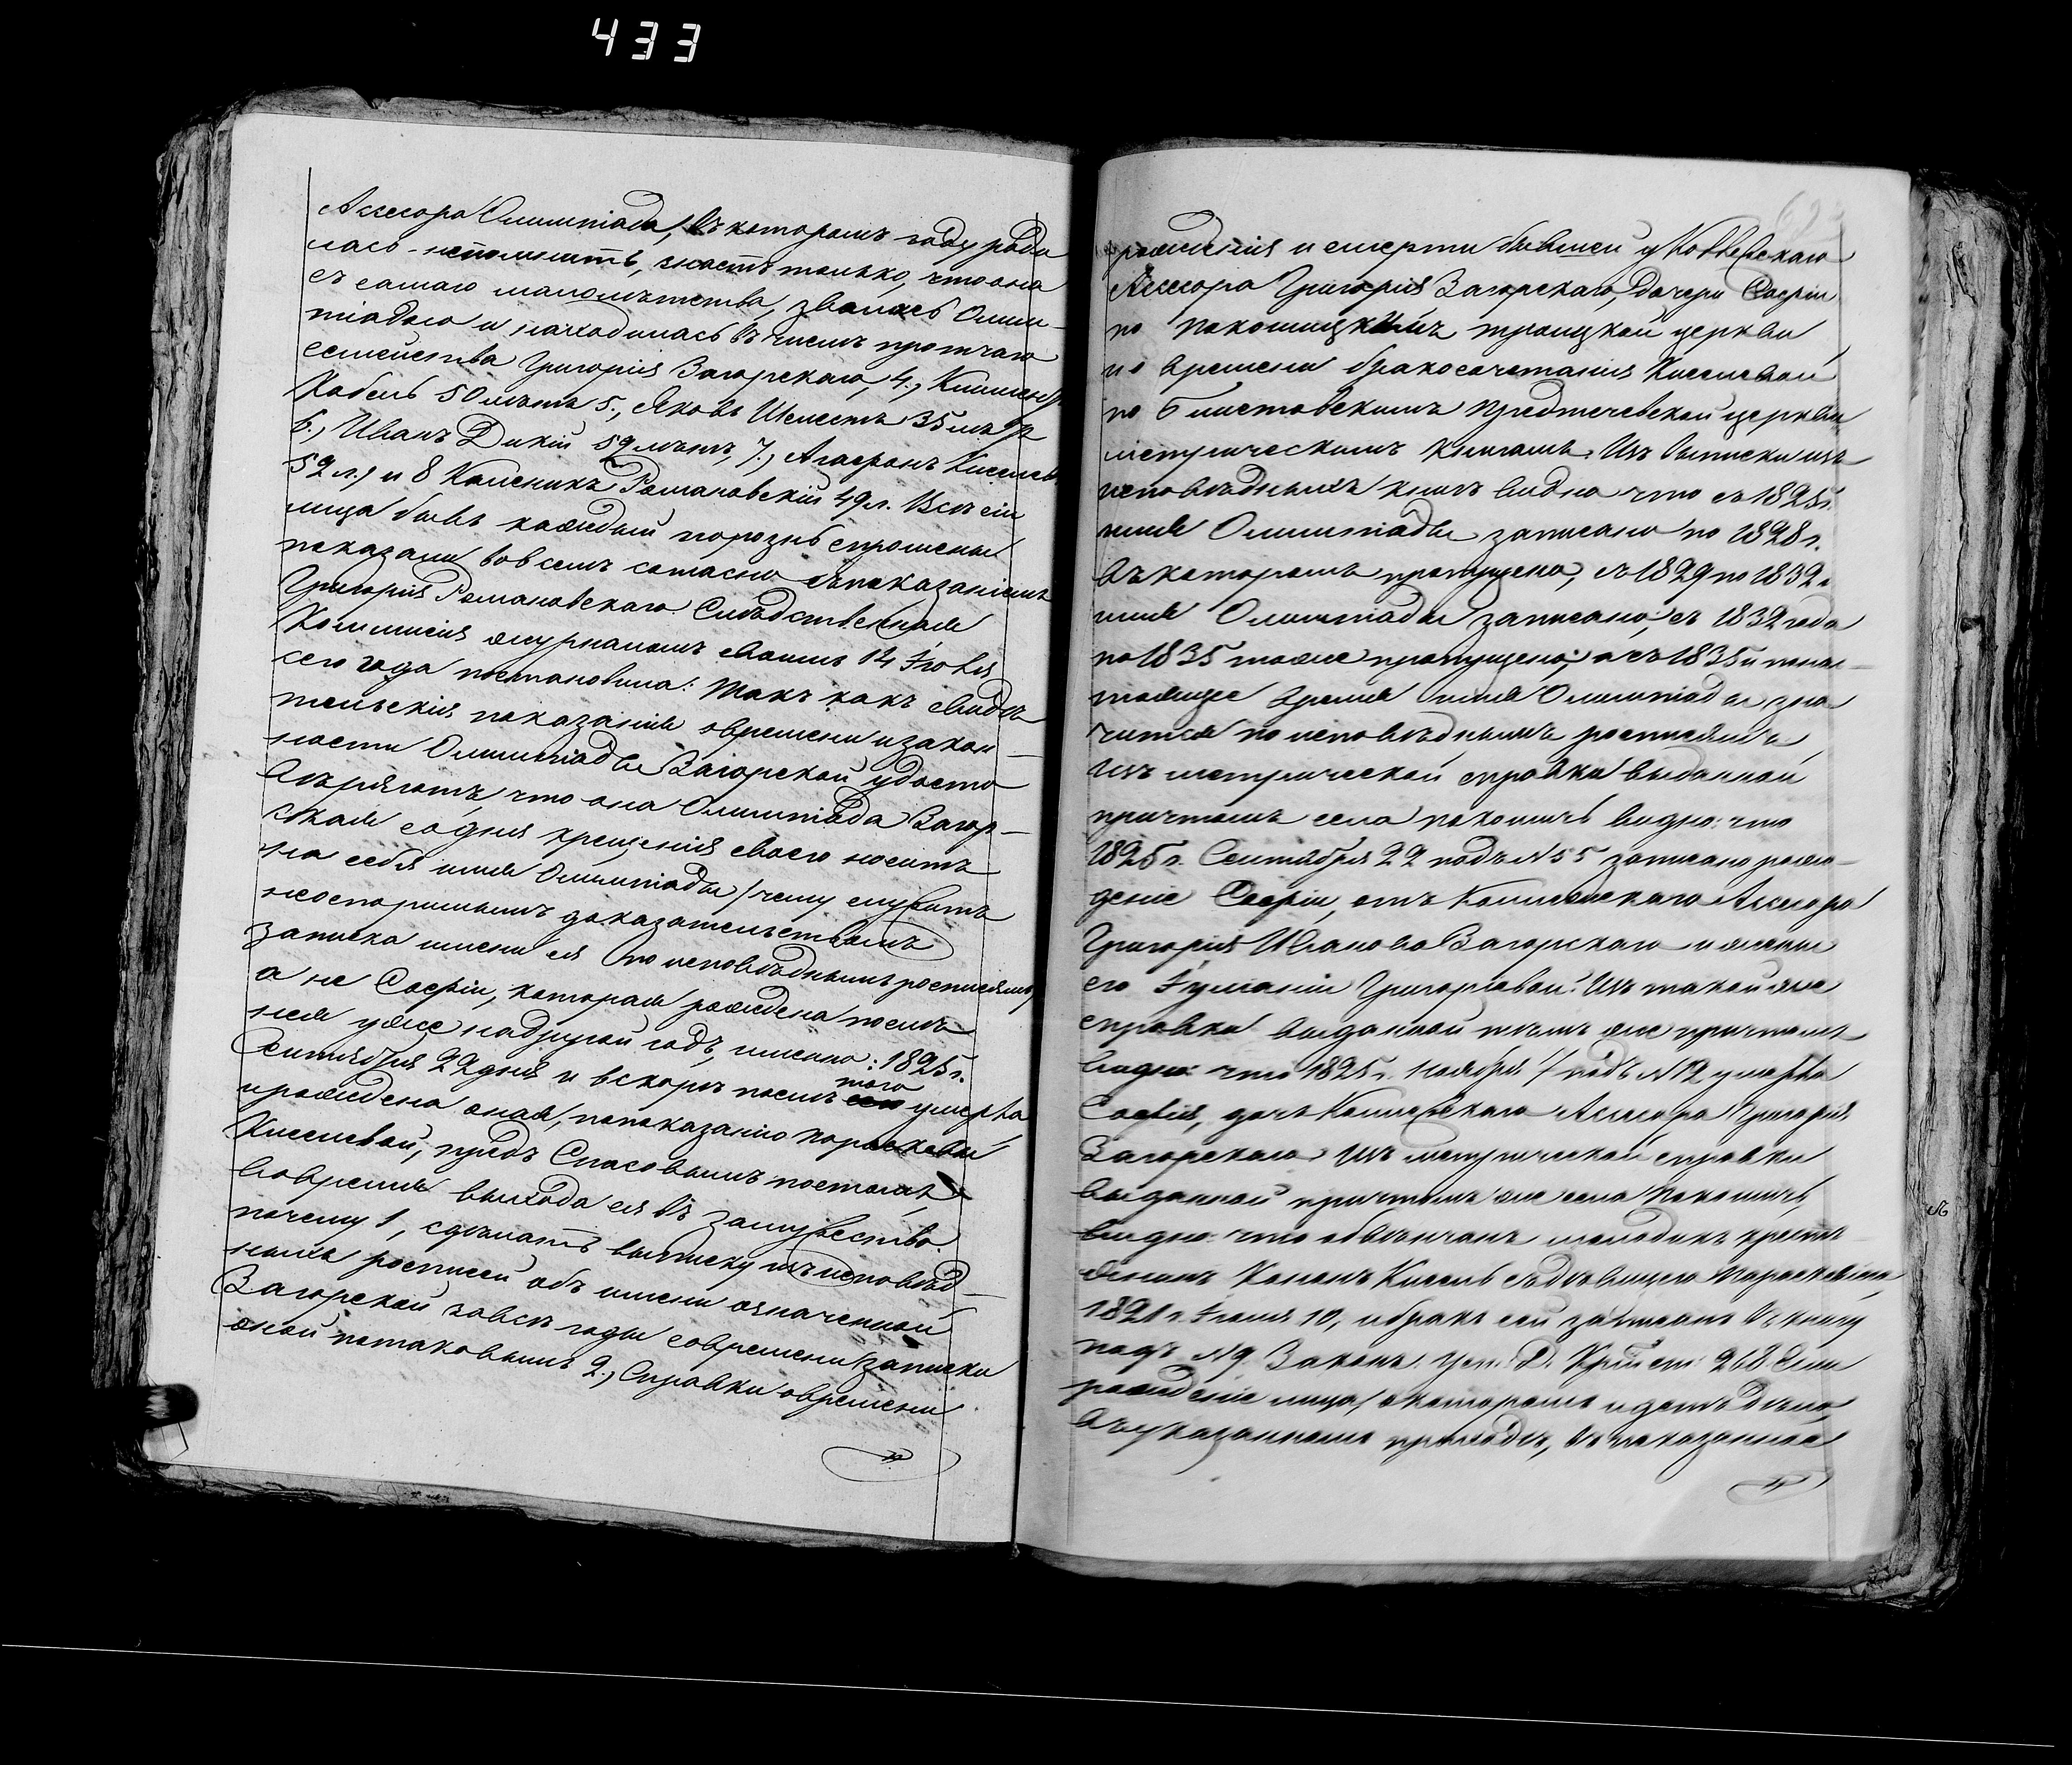 433
Ассесора Олимпіада, въ которомъ году роди
лась - непомнитъ, знаетъ только, что она
съ самаго малолѣтства, звалась Олим-
піадою и находилась въ числѣ протчаго
семейства Григорія Загорскаго, 4., Климентъ
Кобель 50 лѣтъ 5., Яковъ Шелестъ 35 лѣтъ
6., Иванъ Дикій 52 лѣтъ, 7., Агафонъ Киселевъ
52 л., и 8 Каленикъ Романовскій 49 л. Всѣ сіи
лица бывъ каждый порознь спрошены
показали вовсемъ согласно съ показаніемъ
Григорія Романовскаго. Слѣдственная
Коммисія журналомъ своимъ 14 Іюля
сего года постановила: Такъ какъ свидѣ
тельскія показанія овремени изакон-
ности Олимпіады Загорской удосто-
вѣряютъ, что она Олимпіада Загор-
ская содня крещенія своего носитъ
на себѣ имя Олимпіады / чему служитъ
неоспоримымъ доказательствомъ
записка имени ея по исповѣднымъ росписямъ,
а не Софіи, которая рождена послѣ
нея уже надругой годъ, имено: 1825 г.
Сентября 22 дня и вскорѣ послѣ того умерла
ирождена оная, попоказанію Параскевы
Киселевой, предъ Спасовымъ постомъ,
вовремя выхода ея въ замужество.
почему 1, сдѣлать выписку изъ исповѣд-
ныхъ росписей объ имени означенной
Загорской завсѣ годы современи записки
оной потаковымъ 2., Справки овремени
рожденія и смерти бывшей у Коллежскаго
Ассесора Григорія Загорскаго, дочери Софіи
по Покошицкимъ троицкой церкви
ио времени бракосочетанія Киселевой
по Блистовскимъ Предтечевской церкви
метрическимъ книгамъ. Изъ выписки изъ
исповѣдныхъ книгъ видно что съ 1825 г.
имя Олимпіады записано по 1828 г.
въ которомъ пропущено, съ 1829 по 1832 г
имя Олимпіады записано; съ 1832 года
по 1835 тоже пропущено; а съ 1835 и понас-
тоящее время имя Олимпіады зна
чится по исповѣднымъ росписямъ
Изъ метрической справки выданной
причтомъ села Покошичь видно: что
1825 г. Сентября 22 подъ N 55 записано рож-
деніе Софіи, отъ Коллежскаго Ассесора
Григорія Иванова Загорскаго и жены
его Іуліаніи Григорьевой. Изъ такой же
справки выданной тѣмъ же причтомъ
видно: что 1825 г. Ноября подъ N 12 умерла
Софія, дочь Коллежскаго Ассесора Григорія
Загорскаго. Изъ метрической справки
выданной причтомъ же села Покошичь,
видно: что обвѣнчанъ молодикъ крестья
нинъ Кононъ Кисель съ дѣвицею Параскевіею,
1821 г. Іюня 10, ибракъ сей записанъ въ книгу
подъ N 9. Законъ: Уст. Д. К ст: 268. Если
рожденіе лица, о которомъ идетъ дѣло,
въ указанномъ приходѣ, въ показанное